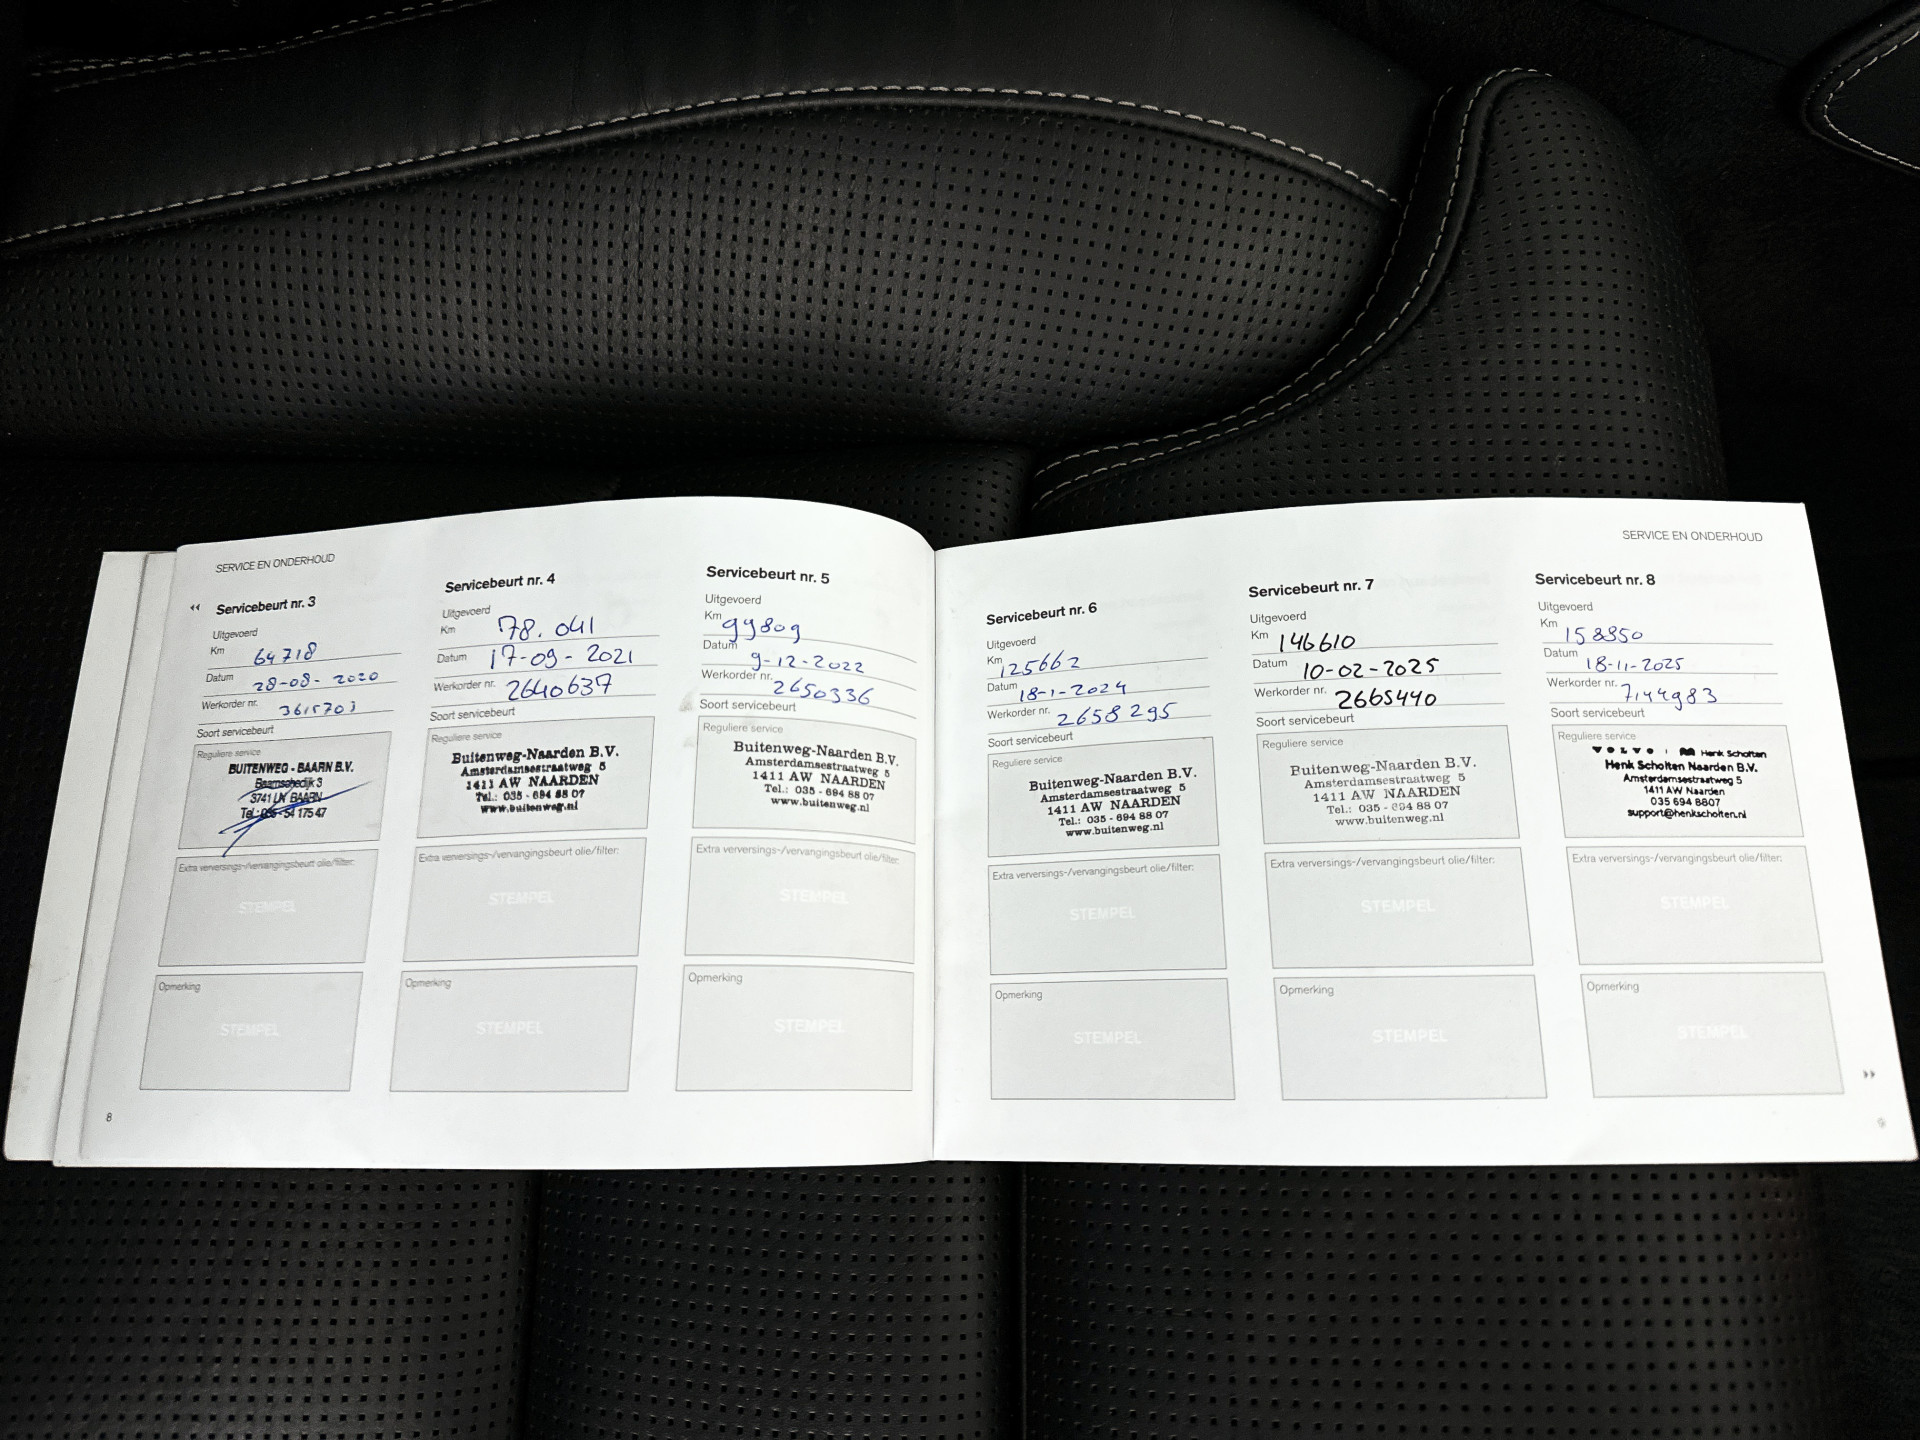 SERVICE EN ONDERHOUD
Servicebeurt nr. 3
Uitgevoerd
Km 64718
Datum 28-08-2020
Werkorder nr. 3615703
Soort servicebeurt
Reguliere service
BUITENWEG - BAARN B.V.
Baarnschedijk 3
3741 LN BAARN
Tel.: 035 - 54 175 47
Extra verversings-/vervangingsbeurt olie/filter:
STEMPEL
Opmerking
STEMPEL
8
Servicebeurt nr. 4
Uitgevoerd
Km 78.041
Datum 17-09-2021
Werkorder nr. 2640637
Soort servicebeurt
Reguliere service
Buitenweg-Naarden B.V.
Amsterdamsestraatweg 5
1411 AW NAARDEN
Tel.: 035 - 694 88 07
www.buitenweg.nl
Extra verversings-/vervangingsbeurt olie/filter:
STEMPEL
Opmerking
STEMPEL
Servicebeurt nr. 5
Uitgevoerd
Km 99809
Datum 9-12-2022
Werkorder nr. 2650336
Soort servicebeurt
Reguliere service
Buitenweg-Naarden B.V.
Amsterdamsestraatweg 5
1411 AW NAARDEN
Tel.: 035 - 694 88 07
www.buitenweg.nl
Extra verversings-/vervangingsbeurt olie/filter:
STEMPEL
Opmerking
STEMPEL
SERVICE EN ONDERHOUD
Servicebeurt nr. 6
Uitgevoerd
Km 125662
Datum 18-1-2024
Werkorder nr. 2658295
Soort servicebeurt
Reguliere service
Buitenweg-Naarden B.V.
Amsterdamsestraatweg 5
1411 AW NAARDEN
Tel.: 035 - 694 88 07
www.buitenweg.nl
Extra verversings-/vervangingsbeurt olie/filter:
STEMPEL
Opmerking
STEMPEL
Servicebeurt nr. 7
Uitgevoerd
Km 146610
Datum 10-02-2025
Werkorder nr. 2665440
Soort servicebeurt
Reguliere service
Buitenweg-Naarden B.V.
Amsterdamsestraatweg 5
1411 AW NAARDEN
Tel.: 035 - 694 88 07
www.buitenweg.nl
Extra verversings-/vervangingsbeurt olie/filter:
STEMPEL
Opmerking
STEMPEL
Servicebeurt nr. 8
Uitgevoerd
Km 158850
Datum 18-11-2025
Werkorder nr. 7144983
Soort servicebeurt
Reguliere service
VOLVO Henk Scholten
Henk Scholten Naarden B.V.
Amsterdamsestraatweg 5
1411 AW Naarden
035 694 8807
support@henkscholten.nl
Extra verversings-/vervangingsbeurt olie/filter:
STEMPEL
Opmerking
STEMPEL
9